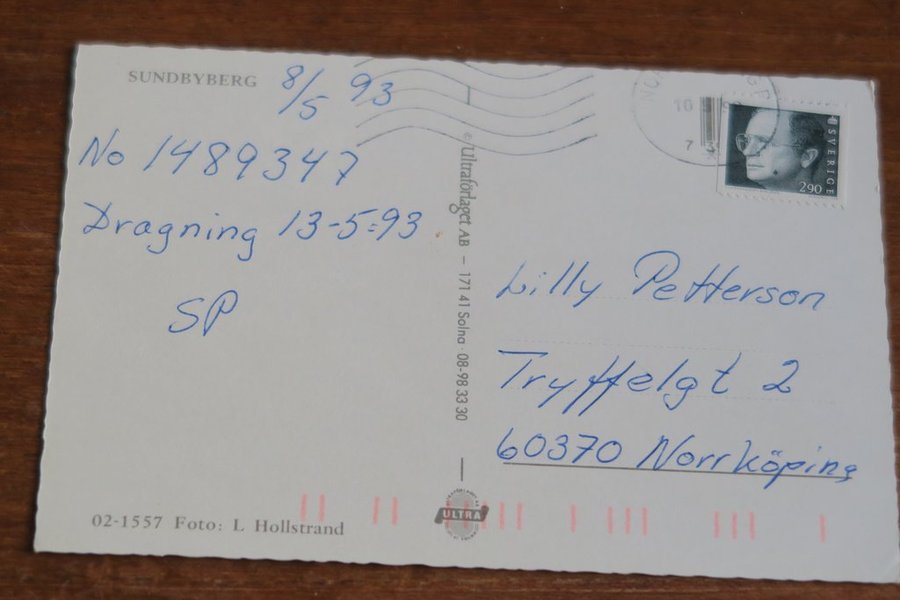 SUNDBYBERG
8/5 93
No 1489347
Dragning 13-5-93
SP
02-1557 Foto: L Hollstrand
© Ultraförlaget AB – 171 41 Solna · 08-98 33 30
ULTRA
SVERIGE
290
Lilly Petterson
Tryffelgt 2
60370 Norrköping